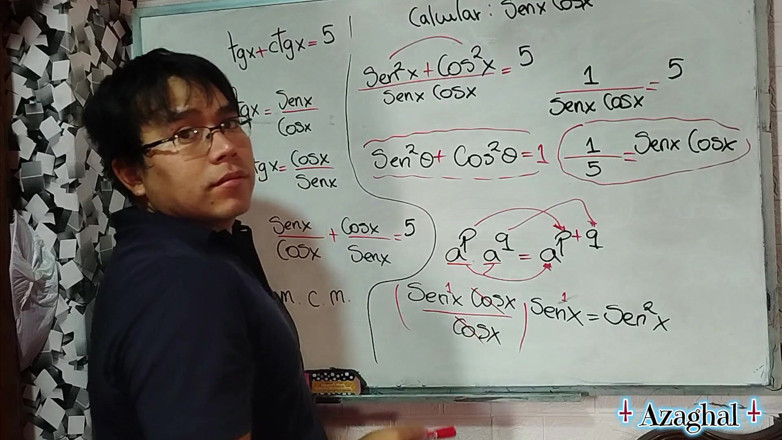 Calcular: Senx Cosx
tgx + ctgx = 5
tgx = Senx/Cosx
tgx = Cosx/Senx
Senx/Cosx + Cosx/Senx = 5
m.c.m.
Sen²x + Cos²x / Senx Cosx = 5
1 / Senx Cosx = 5
Sen²θ + Cos²θ = 1
1/5 = Senx Cosx
a^p a^q = a^p+q
(Sen¹x Cosx / Cosx) Sen¹x = Sen²x
Azaghal